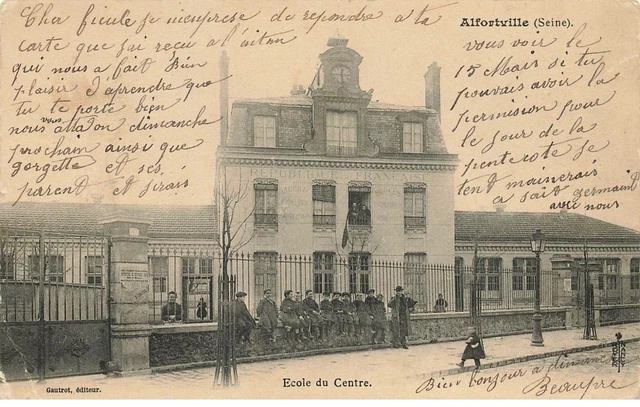 Cher ficule je m'enprese de repondre a ta
carte que j'ai reçu a l'eiton
qui nous a fait Bien
plaisir d'aprendre que
tu te porte bien
nous vers allé on dimanche
prochain ainsi que
gorgette et ses
parrent et serais
Alfortville (Seine).
vous voir le
15 Mais si tu
pouvais avoir la
permission pour
le jour de la
pentecote je
tent mainerais
a sait germain
avec nous
REPUBLIQUE FRANÇAISE
Gautrot, éditeur.
Ecole du Centre.
Bien bonjour a dimanche
Beaupre